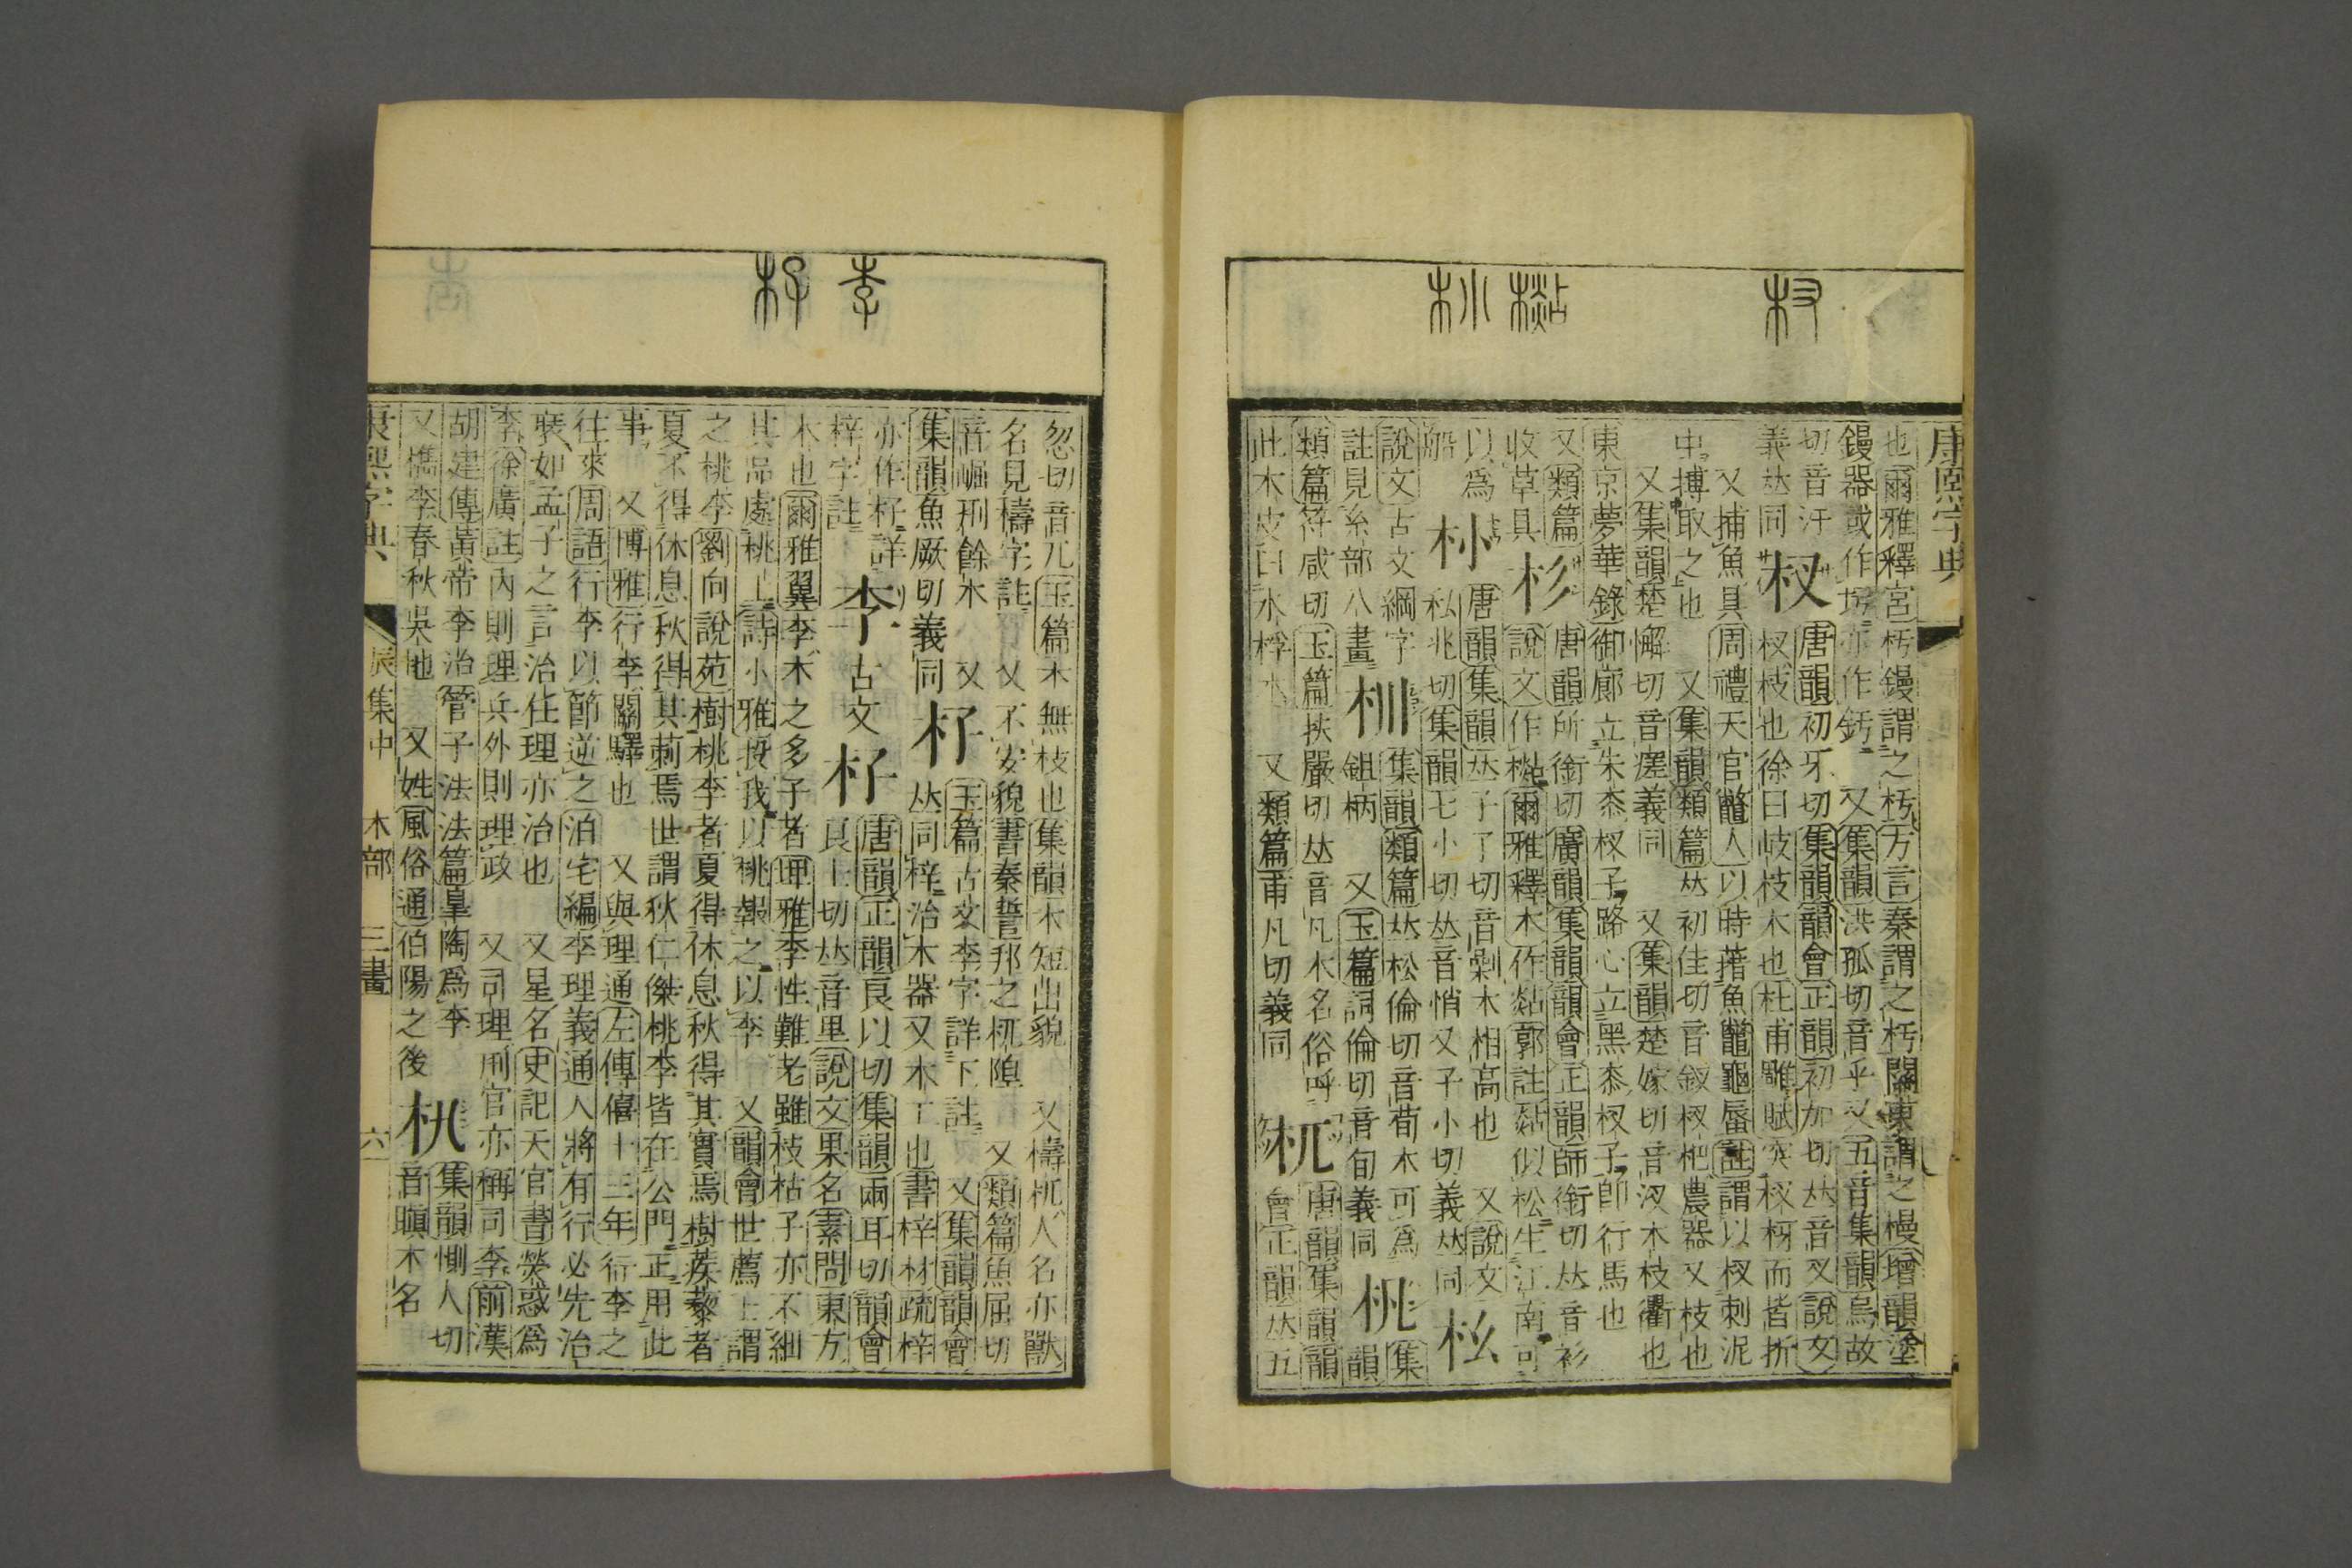 康熙字典
也爾雅釋宮杇鏝謂之杇方言秦謂之杇關東謂之槾增韻塗
鏝器或作圬亦作釫 又集韻洪孤切音乎又五音集韻烏故
切音汙 義𠀤同
杈 唐韻初牙切集韻韻會正韻初加切𠀤音叉說文
杈枝也徐曰岐枝木也杜甫雕賦突杈枒而皆折
又捕魚具周禮天官鼈人以時簎魚鼈龜蜃註謂以杈刺泥
中搏取之也 又集韻類篇𠀤初佳切音釵杈杷農器又枝也
又集韻楚懈切音瘥義同 又集韻楚嫁切音汊木枝衢也
東京夢華錄御廊立朱桼杈子路心立黑桼杈子卽行馬也
又類篇 收草具
杉 唐韻所銜切廣韻集韻韻會正韻師銜切𠀤音衫
說文作㯳爾雅釋木作煔郭註煔似松生江南可
以爲 船
唐韻集韻𠀤子了切音剿木相高也 又說文
私兆切集韻七小切𠀤音悄又子小切義𠀤同
說文古文綱字
註見糸部八畫
杊 集韻類篇𠀤松倫切音荀木可爲
鉏柄 又玉篇詞倫切音旬義同
杋 集韻
類篇符咸切玉篇扶嚴切𠀤音凡木名俗呼
此木皮曰水桴木 又類篇甫凡切義同
杌 唐韻集韻韻
會正韻𠀤五
忽切音兀玉篇木無枝也集韻木短出貌 又檮杌人名亦獸
名見檮字註 又不安貌書秦誓邦之杌隉 又類篇魚屈切
音崛刑餘木 又玉篇古文李字詳下註 又集韻韻會
集韻魚厥切義同
杍 𠀤同梓治木器又木工也書梓材疏梓
亦作杍詳
梓字註
李 古文 杍 唐韻正韻良以切集韻兩耳切韻會
良士切𠀤音里說文果名素問東方
木也爾雅翼李木之多子者埤雅李性難老雖枝枯子亦不細
其品處桃上詩小雅投我以桃報之以李 又韻會世薦士謂
之桃李劉向說苑樹桃李者夏得休息秋得其實焉樹蒺藜者
夏不得休息秋得其莿焉世謂狄仁傑桃李皆在公門正用此
事 又博雅行李關驛也 又與理通左傳僖十三年行李之
往來周語行李以節逆之泊宅編李理義通人將有行必先治
裝如孟子之言治任理亦治也 又星名史記天官書熒惑爲
李徐廣註內則理兵外則理政 又司理刑官亦稱司李前漢
胡建傳黃帝李治管子法法篇皐陶爲李
又檇李春秋吳地 又姓風俗通伯陽之後
集韻惻人切
音瞋木名
康熙字典 辰集中 木部 三畫 六